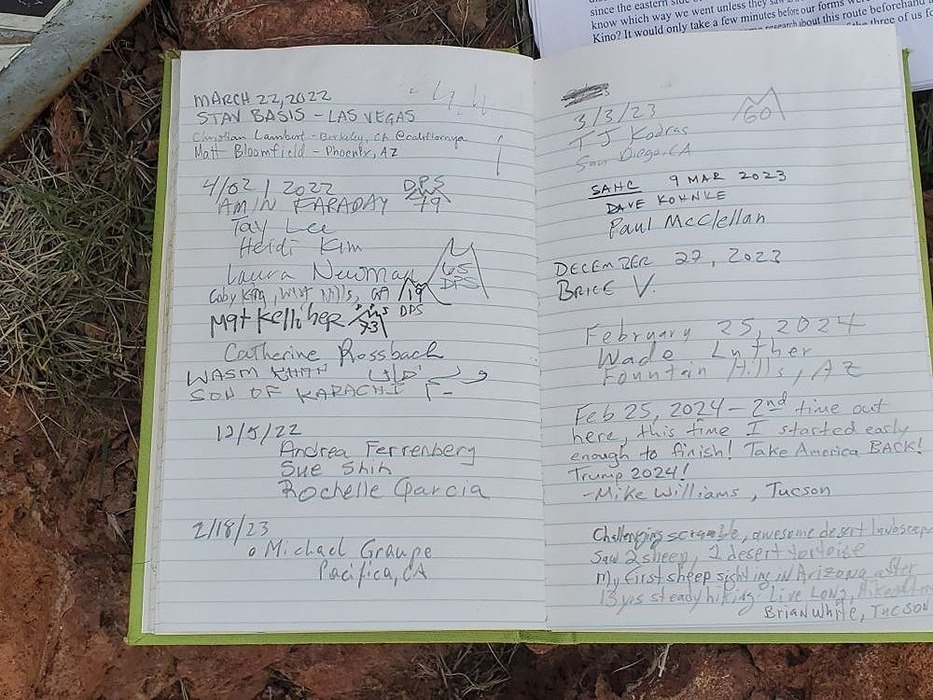 since the eastern side
know which way we went unless they saw
Kino? It would only take a few minutes before our forms were
research about this route beforehand
the three of us
MARCH 22, 2022
STAV BASIS - LAS VEGAS
Christian Lambert - Berkeley, CA @californya
Matt Bloomfield - Phoenix, AZ
4/02/2022
DPS
79
AMIN FARADAY
Tay Lee
Heidi Kim
Laura Newman
65
DPS
Coby King, West Hills, CA
19
DPS
Mat Kelliher
73
Catherine Rossback
WASM KHAN
SON OF KARACHI
12/5/22
Andrea Ferrenberg
Sue Shih
Rochelle Garcia
2/18/23
Michael Graupe
Pacifica, CA
3/3/23
60
TJ Kodras
San Diego, CA
SAHC 9 MAR 2023
DAVE KOHNKE
Paul McClellan
DECEMBER 27, 2023
BRICE V.
February 25, 2024
Wade Lyther
Fountain Hills, AZ
Feb 25, 2024 - 2nd time out
here, this time I started early
enough to finish! Take America BACK!
Trump 2024!
-Mike Williams, Tucson
Challenging scramble, awesome desert landscape
Saw 2 sheep, 1 desert tortoise
My first sheep sighting in Arizona after
13 yrs steady hiking. Live Long, Hike
Brian White, TUCSON